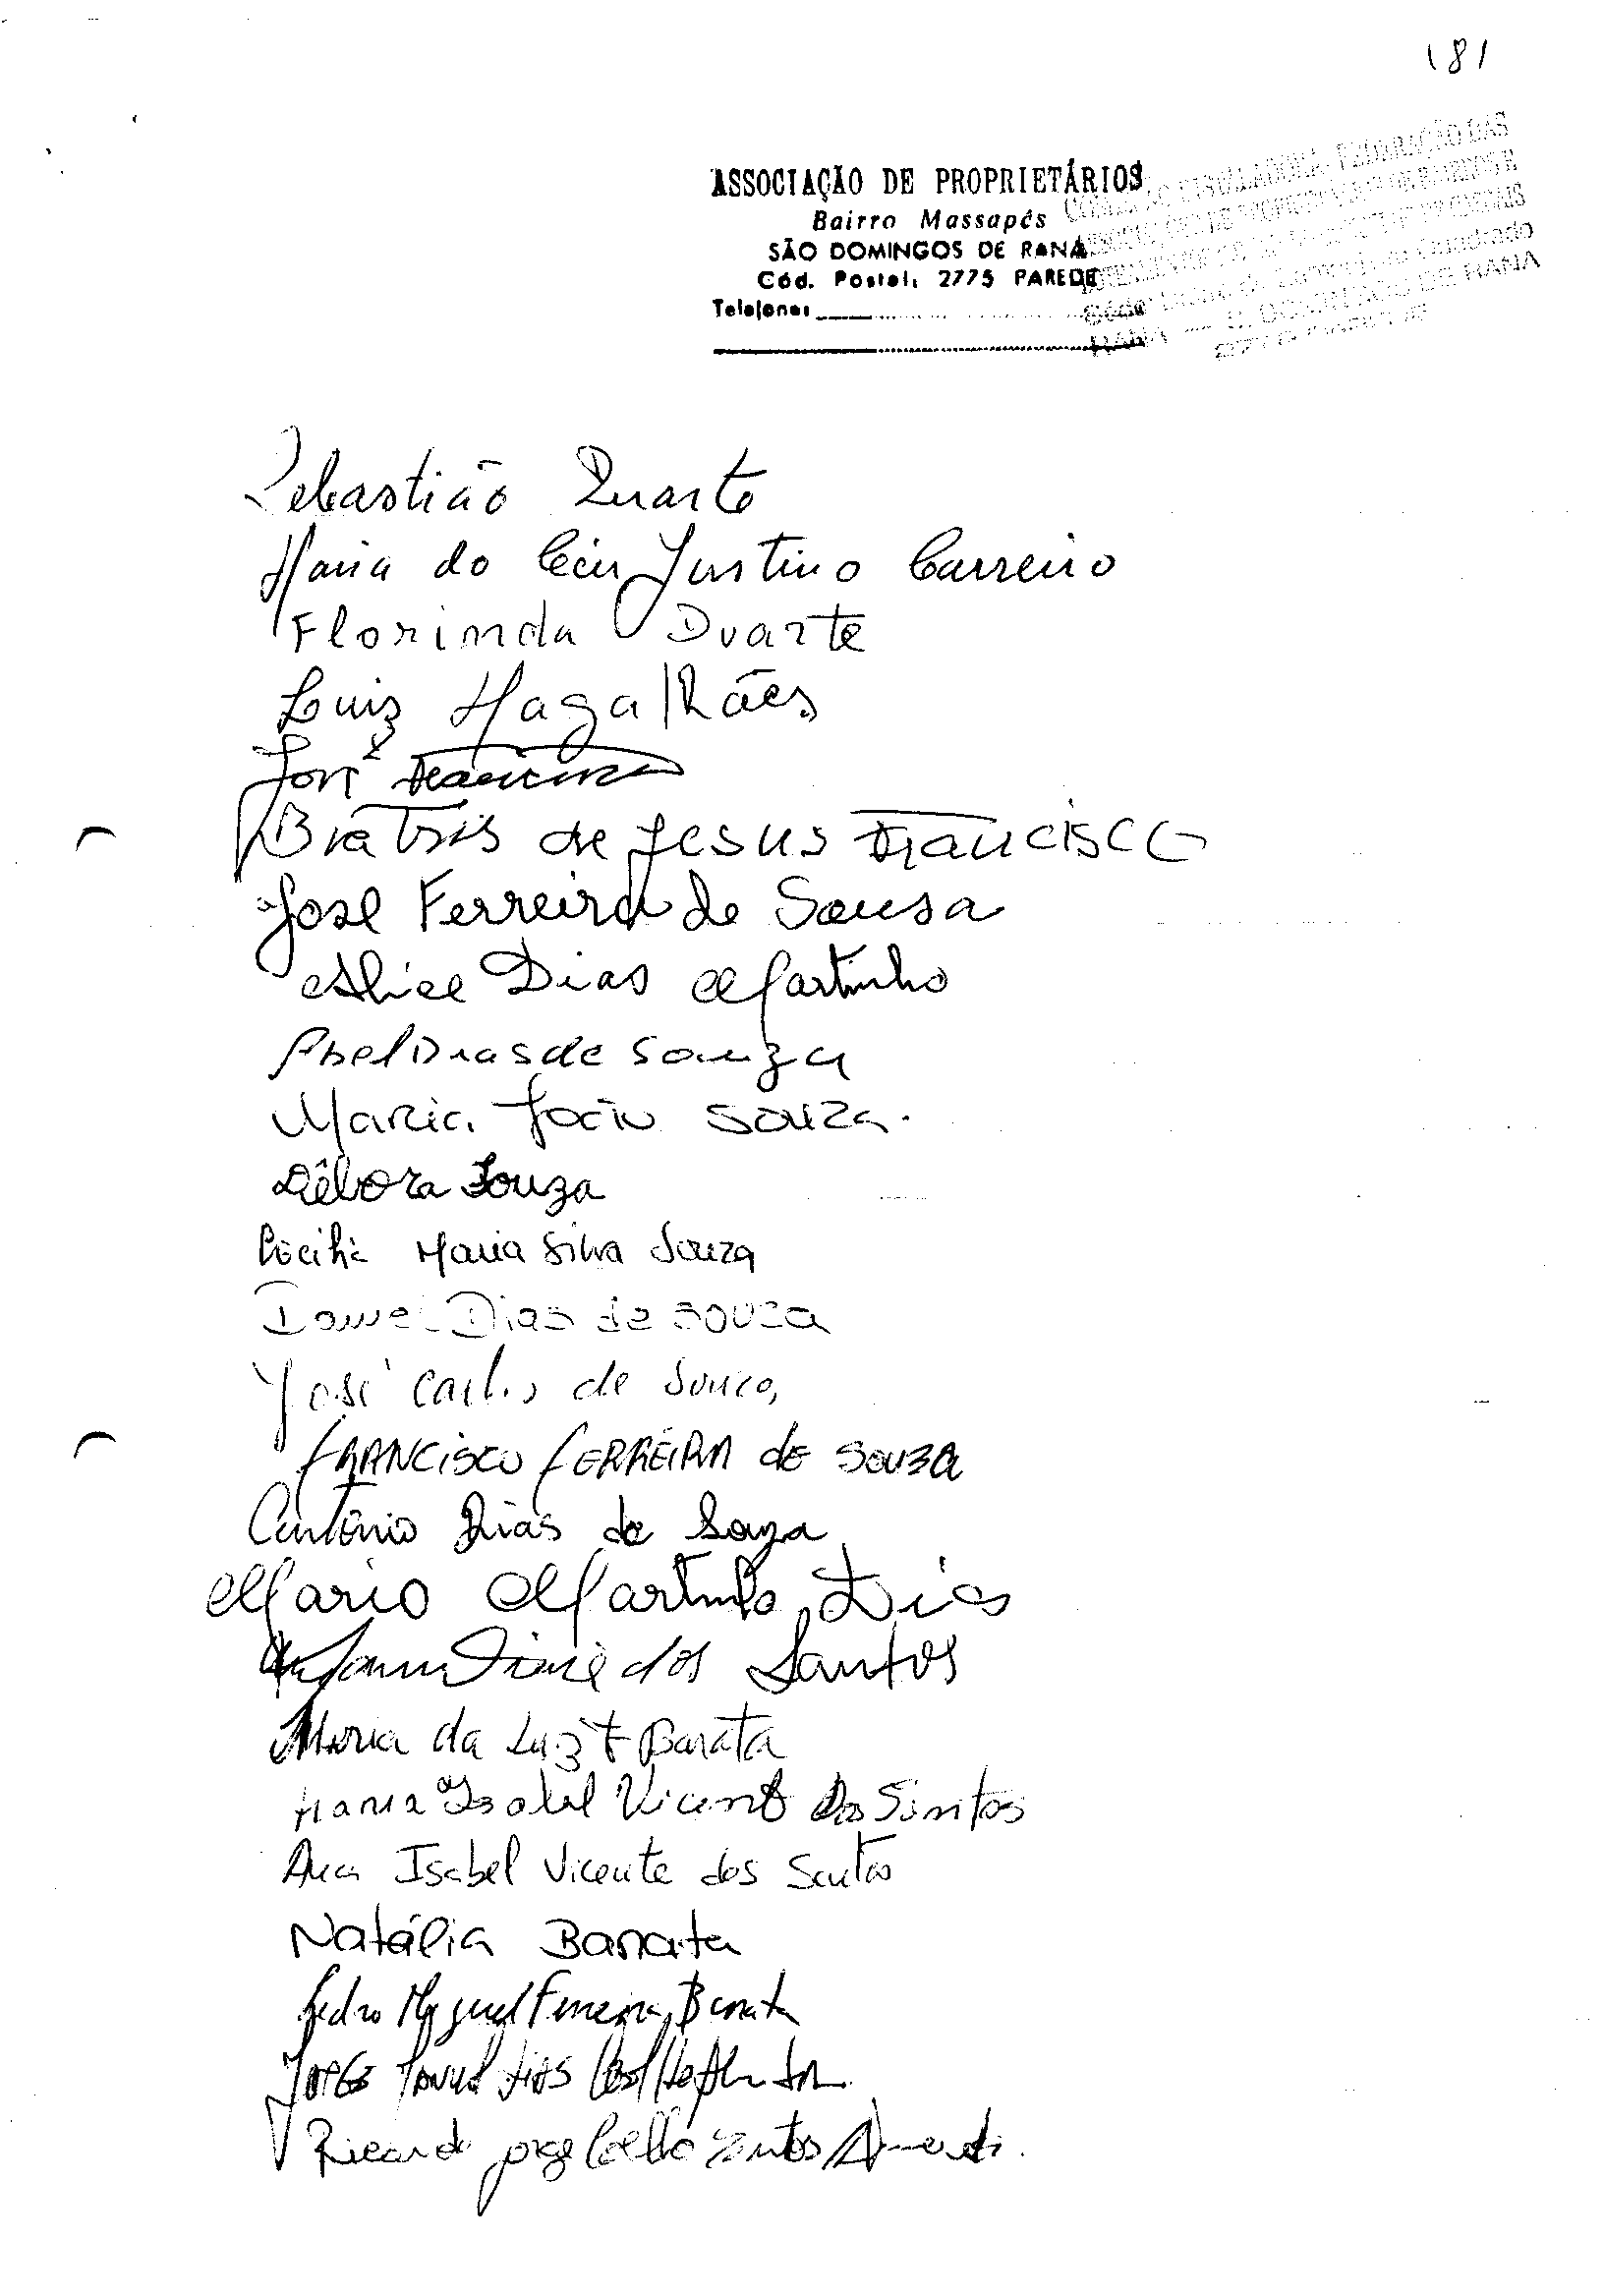 181
ASSOCIAÇÃO DE PROPRIETÁRIOS
Bairro Massapés
SÃO DOMINGOS DE RANA
Cód. Postal, 2775 PAREDE
Telefone:
FEDERAÇÃO DAS
RANA — S. DOMINGOS DE RANA
Sebastião Duarte
Maria do Céu Justino Carreiro
Florinda Duarte
Luiz Magalhães
José Francisco
Biatris de Jesus Francisco
José Ferreira de Sousa
Alice Dias Martinho
Abel Dias de Souza
Maria João Souza.
Débora Souza
Cecília Maria Silva Souza
Daniel Dias de Souza
José Carlos de Souza,
FRANCISCO FERREIRA de SOUZA
António Dias de Souza
Mário Martinho Dias
dos Santos
Maria da Luz F Barata
Maria Isabel Vicente dos Santos
Ana Isabel Vicente dos Santos
Natália Barata
Pedro Miguel Ferreira Barata
Jorge Manuel Dias
Ricardo Jorge Coelho Santos